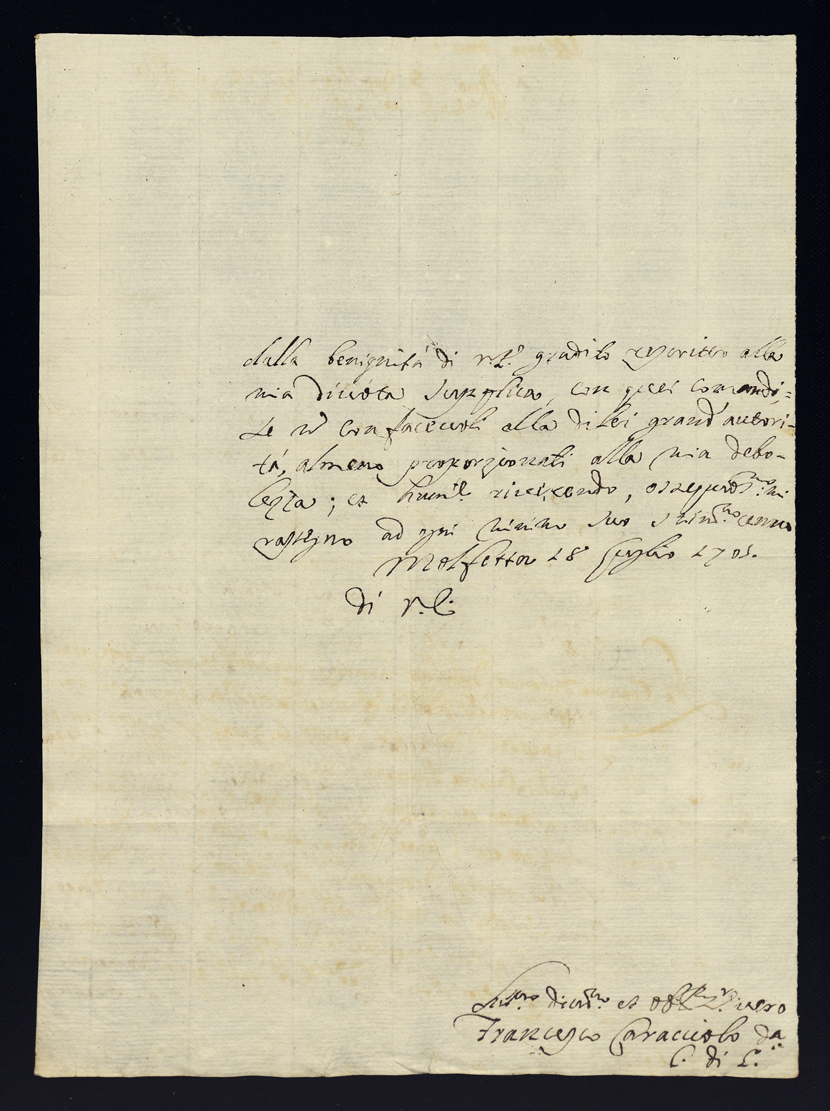 dalla benignità di V.E. gradito esporitro alla
mia divota supplica, con quei comandi,
se n͂ confacevoli alla di lei grand'autori-
tà, almeno proporzionati alla mia debo-
lezza; et humil.e rivirendo, ossequios.mo mi
rassegno ad ogni minimo suo stim.mo cenno
Molfetta 18 Luglio 1705.
di V.E.
divot.mo et vero
Francesco Caracciolo
C. di L.